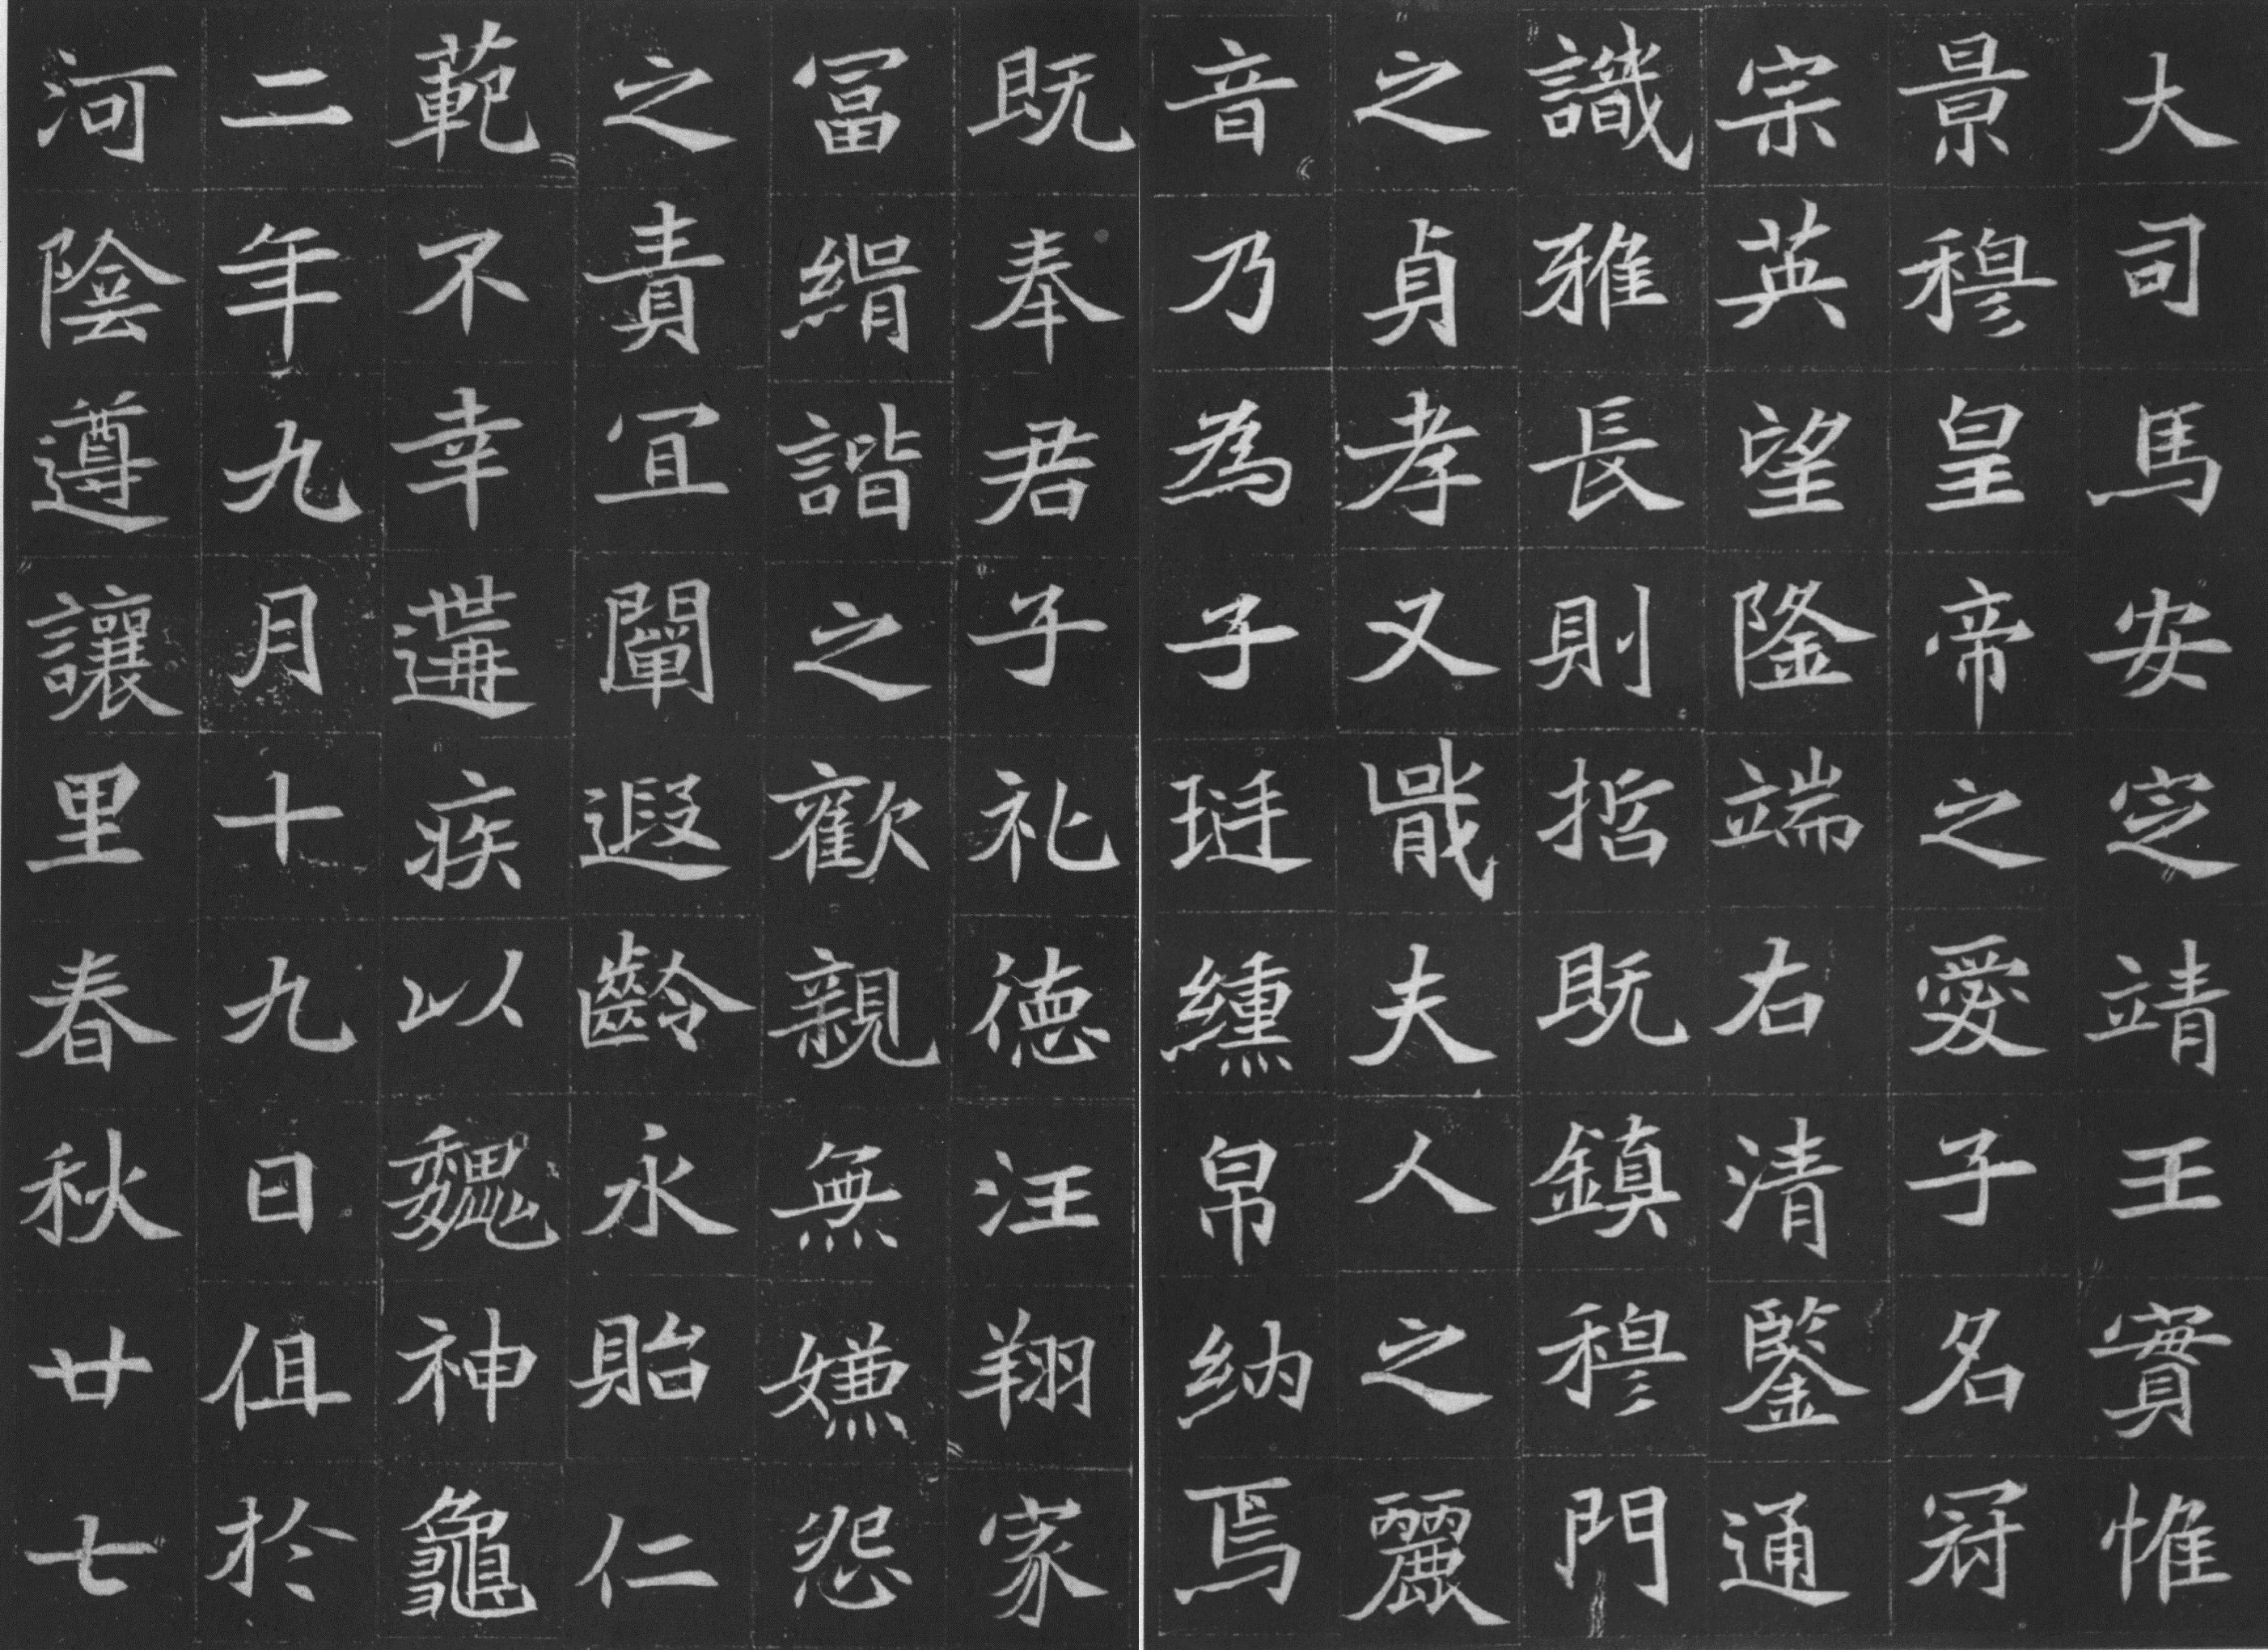 大司馬安定靖王實惟
景穆皇帝之愛子名冠
宗英望隆端右清鑒通
識雅長則哲既鎮穆門
之貞孝又戢夫人之麗
音乃為子琎纁帛納焉
既奉君子礼德汪翔家
冨縎諧之歡親無嫌怨
之責宜闡遐齡永貽仁
範不幸遘疾以魏神龜
二年九月十九日徂於
河陰遵讓里春秋廿七